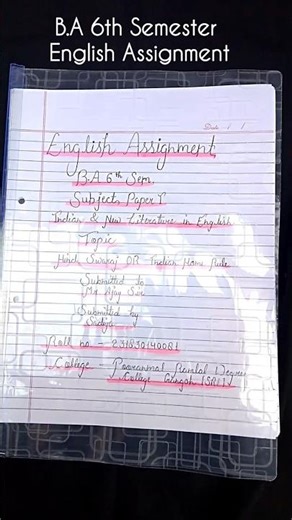 B.A 6th Semester
English Assignment
Date
English Assignment
B.A 6th Sem.
Subject Paper I
Indian & New Literature in English
Topic
Hind Swaraj OR Indian Home Rule
Submitted to
Mr. Ajay Sir
Submitted by
Roll no -
College - Degree
College